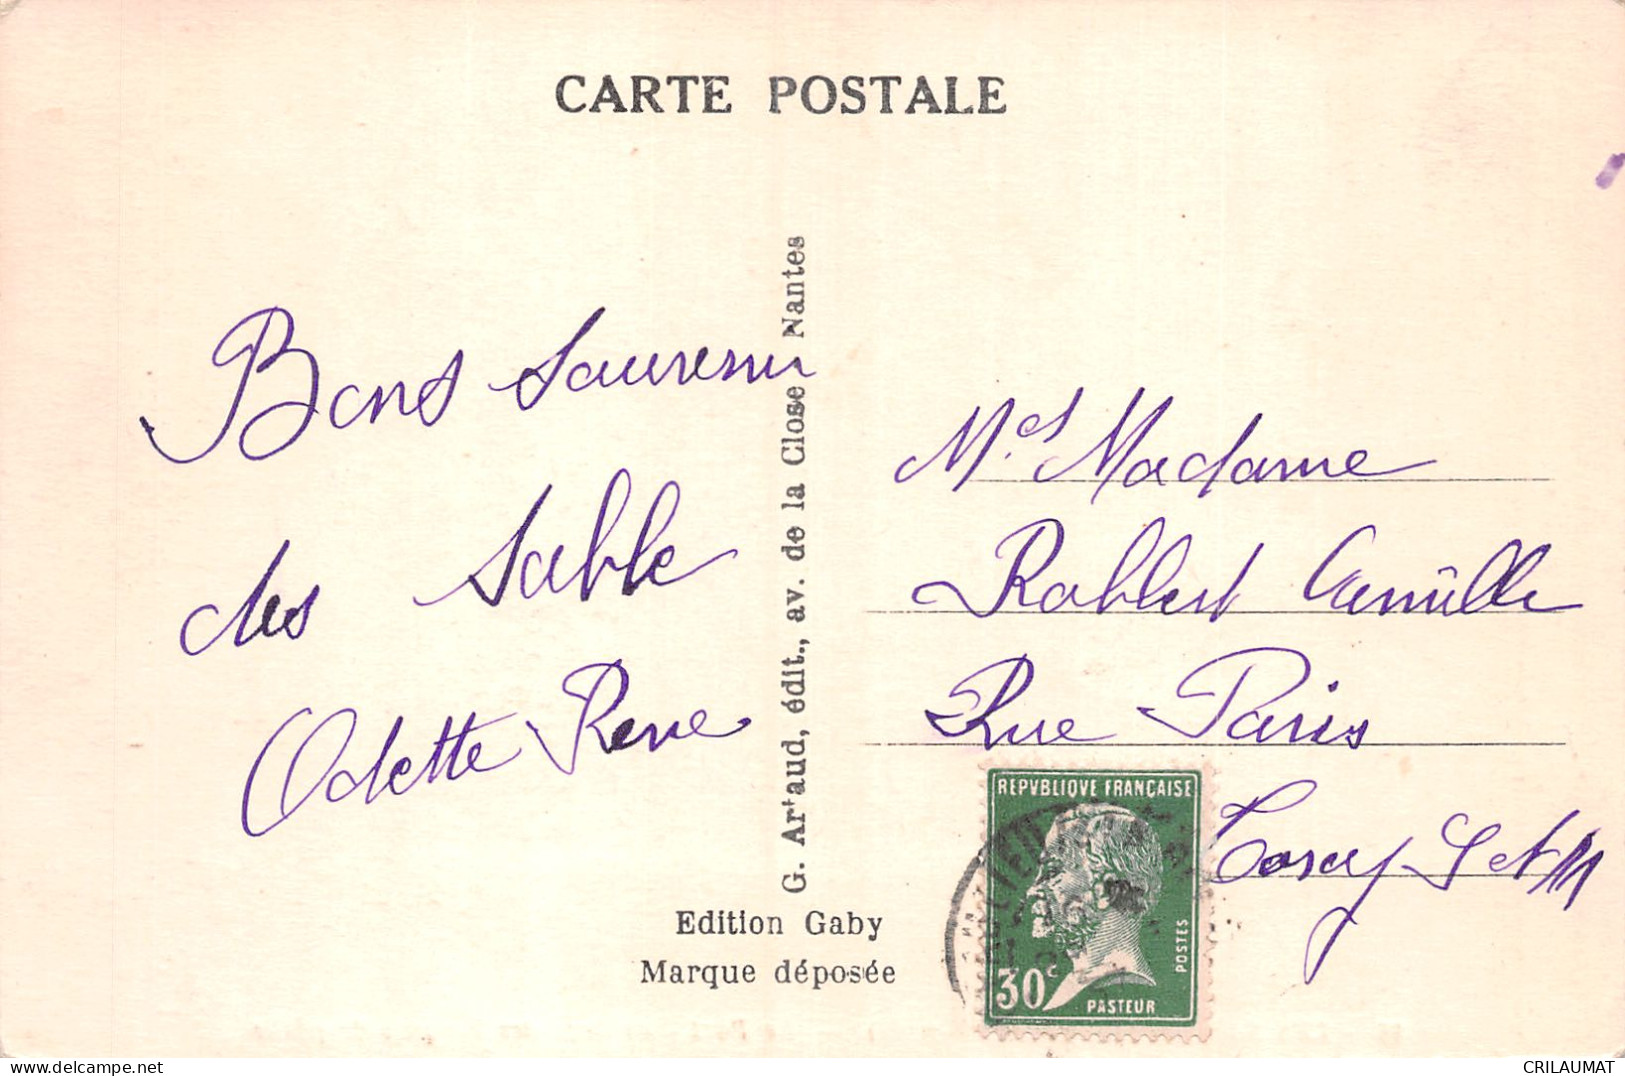 CARTE POSTALE
Bons Souvenir
des Sable
Odette Rene
G. Artaud, édit., av. de la Close Nantes
Edition Gaby
Marque déposée
M. et Madame
Robbert Camille
Rue Paris
Torcy S et M
REPVBLIQVE FRANÇAISE
30c
POSTES
PASTEUR
CRILAUMAT